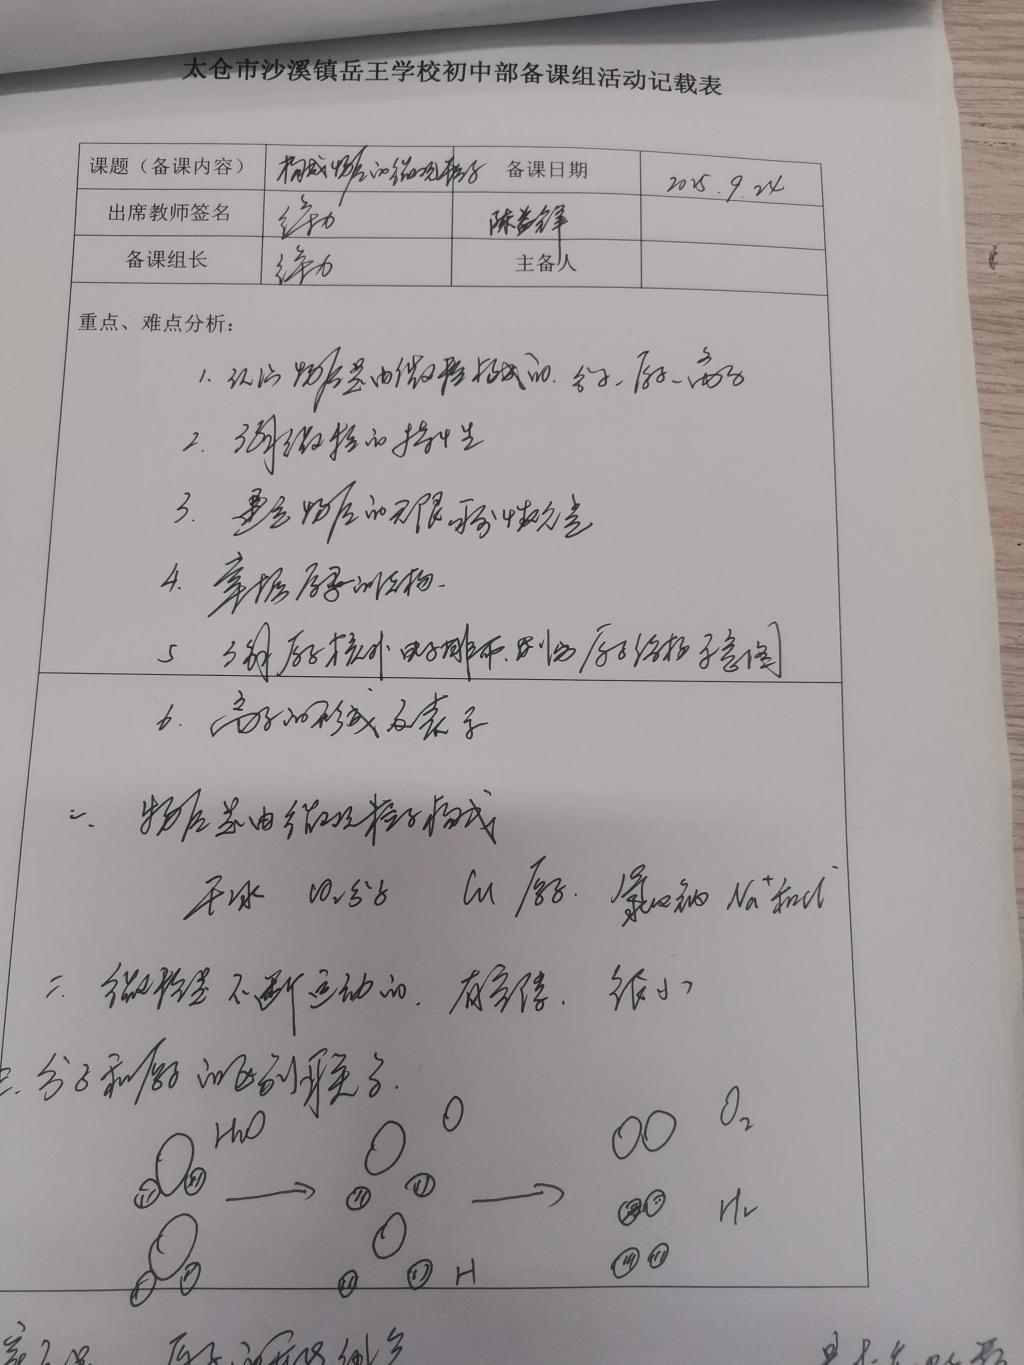 太仓市沙溪镇岳王学校初中部备课组活动记载表
课题（备课内容） 构成物质的微观粒子 备课日期 2025.9.24
出席教师签名 陈益锋
备课组长 主备人
重点、难点分析：
1. 认识物质是由微粒构成的. 分子、原子、离子
2. 了解微粒的特性
3. 物质的无限可分性
4. 掌握原子的结构.
5 了解原子核外电子排布. 原子结构示意图
6. 离子的形成及表示
一. 物质是由微观粒子构成
干冰 CO₂分子 Cu 原子. 氯化钠 Na⁺和Cl⁻
二. 微粒是不断运动的. 有间隙. 很小
三. 分子和原子的区别联系.
H₂O O O₂
H₂
H